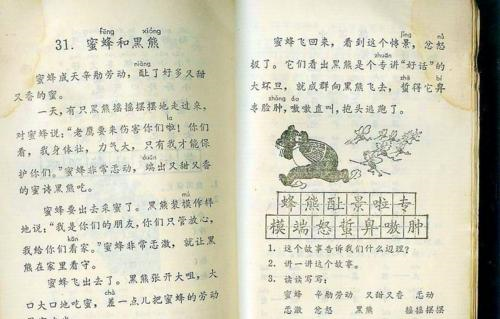 fēng xióng
31. 蜜蜂和黑熊
niàng
蜜蜂成天辛勤劳动，酿了好多又甜
又香的蜜。
一天，有只黑熊摇摇摆摆地走过来，
la
对蜜蜂说：“老鹰要来伤害你们啦！你们
看，我身体壮，力气大，只有我才能保
duān
护你们。”蜜蜂非常感激，端出又甜又香
的蜜请黑熊吃。
mú
蜜蜂要出去采蜜了。黑熊装模作样
地说：“我是你们的朋友，你们只管放心，
我给你们看家。”蜜蜂非常感激，就让黑
熊在家里看守。
蜜蜂飞出去了。黑熊张开大咀，大
chà
口大口地吃蜜，差一点儿把蜜蜂的劳动
jǐng nù
蜜蜂飞回来，看到这个情景，忿怒
zhuān
极了。它们看出黑熊是个专讲“好话”的
zhē bí
大坏旦，就成群向黑熊飞去，蜇得它鼻
zhǒng áo
青脸肿，嗷嗷直叫，抱头逃跑了。
蜂熊酿景啦专
模端怒蜇鼻嗷肿
1. 这个故事告诉我们什么道理？
2. 讲一讲这个故事。
3. 读读写写：
蜜蜂 辛勤劳动 又甜又香 忿怒
感激 忿怒 黑熊 摇摇摆摆